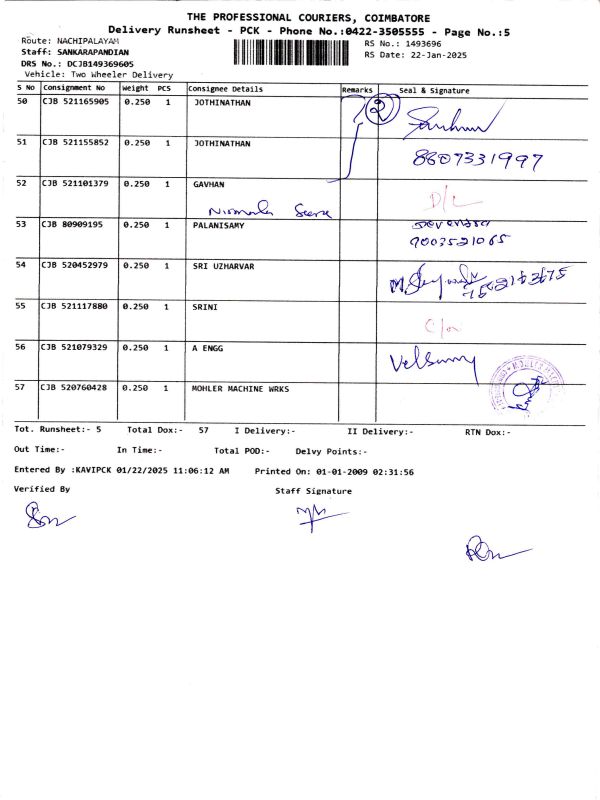 THE PROFESSIONAL COURIERS, COIMBATORE
Delivery Runsheet - PCK - Phone No.:0422-3505555 - Page No.:5
Route: NACHIPALAYAM RS No.: 1493696
Staff: SANKARAPANDIAN RS Date: 22-Jan-2025
DRS No.: DCJB149369605
Vehicle: Two Wheeler Delivery
S No Consignment No Weight PCS Consignee Details Remarks Seal & Signature
50 CJB 521165905 0.250 1 JOTHINATHAN 2
51 CJB 521155852 0.250 1 JOTHINATHAN 8807331997
52 CJB 521101379 0.250 1 GAVHAN D/L
53 CJB 80909195 0.250 1 PALANISAMY
9003521065
54 CJB 520452979 0.250 1 SRI UZHARVAR
55 CJB 521117880 0.250 1 SRINI
56 CJB 521079329 0.250 1 A ENGG
57 CJB 520760428 0.250 1 MOHLER MACHINE WRKS
Tot. Runsheet:- 5 Total Dox:- 57 I Delivery:- II Delivery:- RTN Dox:-
Out Time:- In Time:- Total POD:- Delvy Points:-
Entered By :KAVIPCK 01/22/2025 11:06:12 AM Printed On: 01-01-2009 02:31:56
Verified By Staff Signature